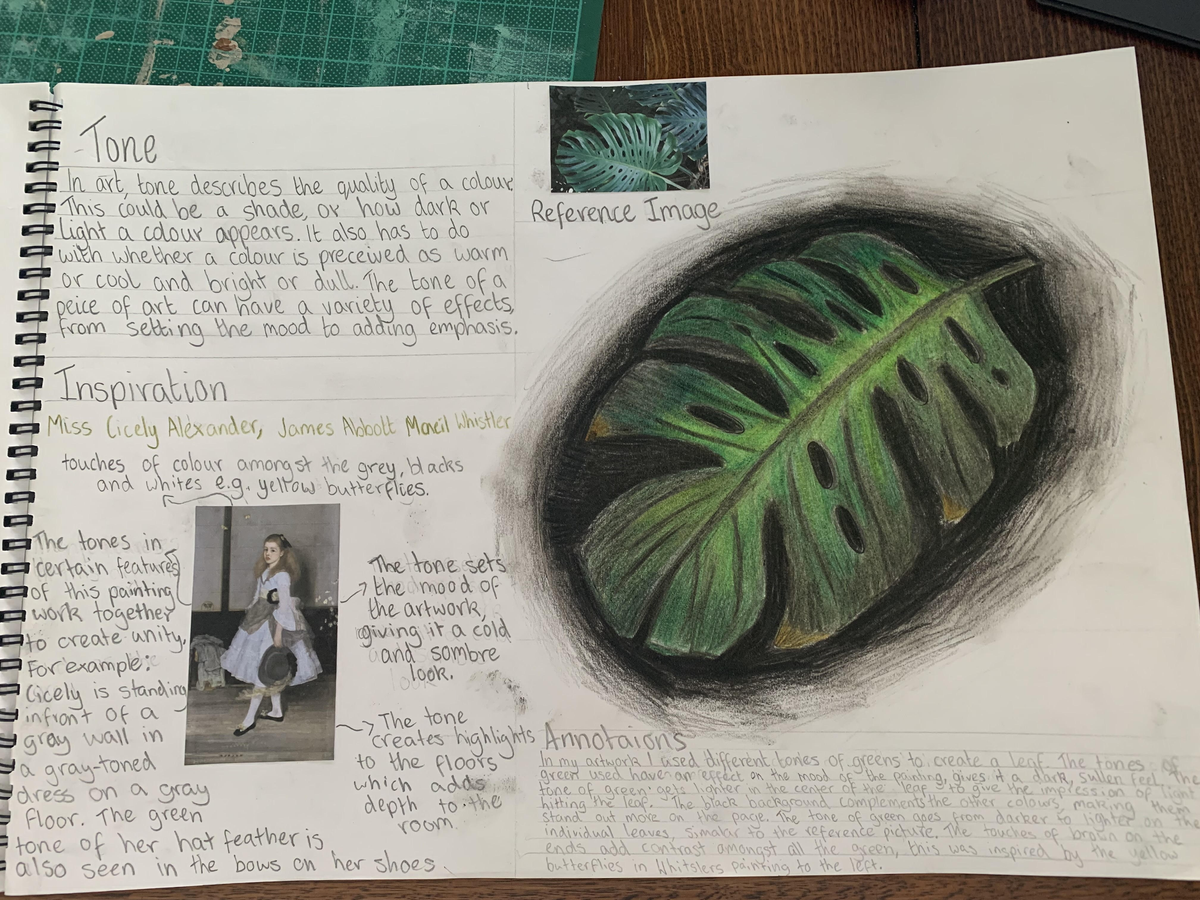 Tone
In art, tone describes the quality of a colour
This could be a shade, or how dark or
light a colour appears. It also has to do
with whether a colour is preceived as warm
or cool and bright or dull. The tone of a
peice of art can have a variety of effects,
from setting the mood to adding emphasis.
Inspiration
Miss Cicely Alexander, James Abbott Macneil Whistler
touches of colour amongst the grey, blacks
and whites e.g. yellow butterflies.
The tones in
certain features
of this painting
work together
to create unity.
For example:
Cicely is standing
infront of a
gray wall in
a gray-toned
dress on a gray
floor. The green
tone of her hat feather is
also seen in the bows on her shoes.
The tone sets
the mood of
the artwork,
giving it a cold
and sombre
look.
The tone
creates highlights
to the floors
which adds
depth to the
room.
Reference Image
Annotaions
In my artwork I used different tones of greens to create a leaf. The tones of
green used have an effect on the mood of the painting, gives it a dark, sullen feel. The
tone of green gets lighter in the center of the leaf to give the impression of light
hitting the leaf. The black background complements the other colours, making them
stand out more on the page. The tone of green goes from darker to lighter on the
individual leaves, simalar to the reference picture. The touches of brown on the
ends add contrast amongst all the green, this was inspired by the yellow
butterflies in Whitslers painting to the left.